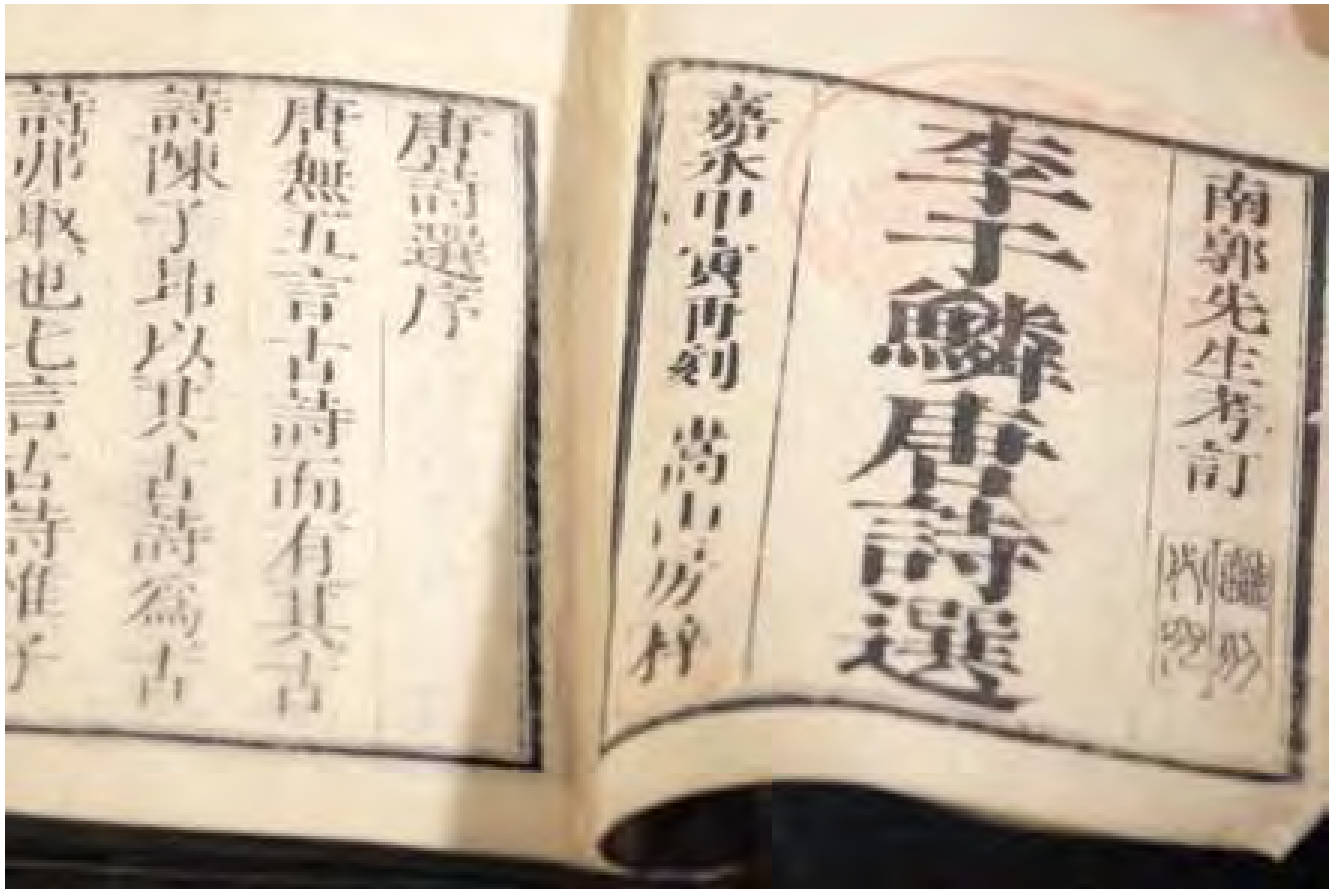 南郭先生考訂
李于鱗唐詩選
嘉永甲寅再刻 嵩山房梓
唐詩選序
唐無五言古詩而有其古
詩陳子昻以其古詩爲古
詩弗取也七言古詩惟子